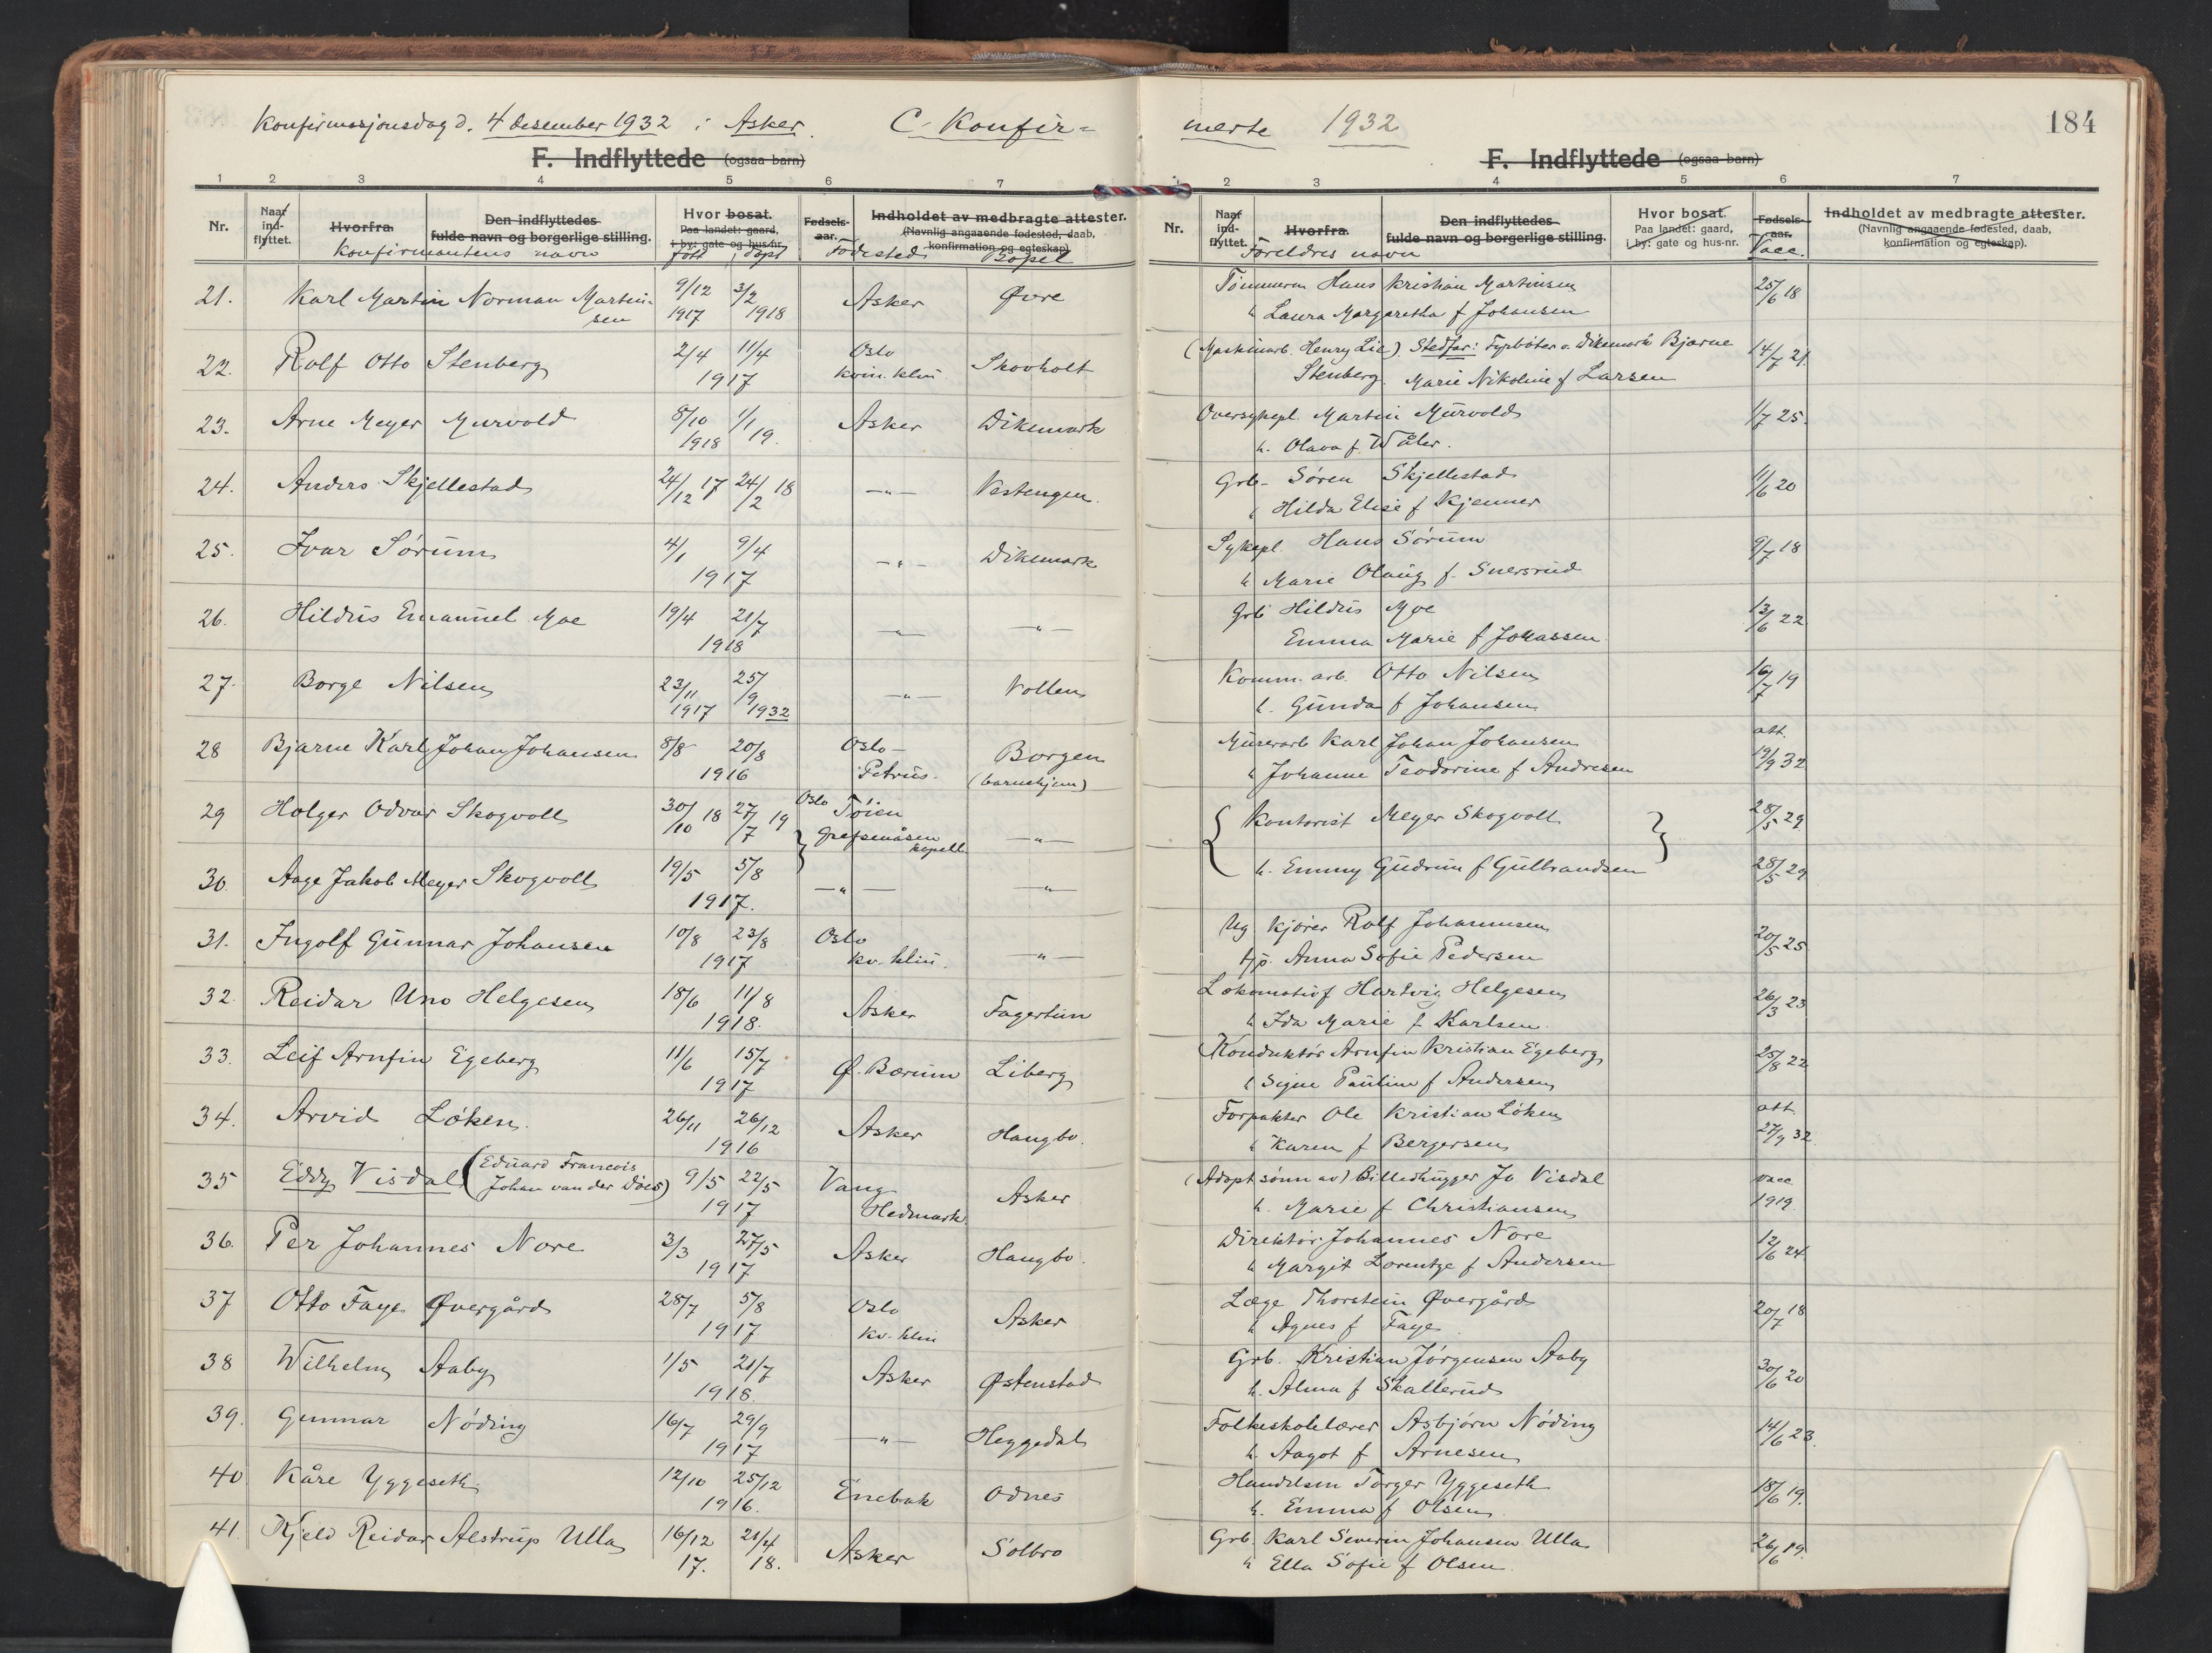 Konfirmasjonsdag d. 4 desember 1932 i Asker. C. Konfir=
merte 1932
184
F. Indflyttede (ogsaa barn)
F. Indflyttede (ogsaa barn)
1 2 3 4 5 6 7
1 2 3 4 5 6 7
Nr. Naar ind-flyttet. Hvorfra. Den indflyttedes fulde navn og borgerlige stilling. Hvor bosat. Paa landet: gaard, i by: gate og hus-nr. Fødsels-aar. Indholdet av medbragte attester. (Navnlig angaaende fødested, daab, konfirmation og egteskap).
Konfirmantens navn født døpt Fødested Bopel
Nr. Naar ind-flyttet. Hvorfra. Den indflyttedes fulde navn og borgerlige stilling. Hvor bosat. Paa landet: gaard, i by: gate og hus-nr. Fødsels-aar. Indholdet av medbragte attester. (Navnlig angaaende fødested, daab, konfirmation og egteskap).
Foreldres navn Vacc.
21. Karl Martin Norman Martin- 9/12 3/2 Asker Øvre
sen 1917 1918
Tømmerm Hans Kristian Martinsen 25/6 18
h Laura Margaretha f Johansen
22. Rolf Otto Stenberg 2/4 11/4 Oslo Skovholt
1917 kvin. klin.
(Maskinarb. Henry Lie). Stedfar: Fyrbøter v. Dikemark Bjarne 14/7 21.
Stenberg. Marie Nikoline f Larsen
23. Arne Meyer Murvold 8/10 1/1 Asker Dikemark
1918 19.
Oversykepl. Martin Murvold 1/7 25.
h. Olava f. Wåler.
24. Anders Skjellestad 24/12 17 24/2 18 —"— Vestengen.
Grb- Søren Skjellestad 11/6 20
h Hilda Elise f Kjenner
25. Ivar Sørum 4/1 9/4 —"— Dikemark
1917
Sykepl Hans Sørum 9/7 18
h Marie Olaug f. Snersrud
26. Hildus Emanuel Moe 19/4 21/7 —"— —"—
1918
Grb Hildus Moe 13/6 22
Emma Marie f Johassen
27. Borge Nilsen 23/11 25/9 —"— Vollen
1917 1932
Komm. arb. Otto Nilsen 16/7 19
h. Gunda f Johansen
28 Bjarne Karl Johan Johansen 8/8 20/8 Oslo- Borgen
1916 Petrus. (barnehjem)
Murerarb Karl Johan Johansen att. 19/9 32
h Johanne Teodorine f Andresen
29 Holger Odvar Skogvoll 30/10 18 27/7 19 Oslo Tøien —"—
Grefsenåsen kapell
{ Kontorist Meyer Skogvoll } 28/5 29
30. Aage Jakob Meyer Skogvoll 19/5 5/8 —"— —"—
1917.
h. Emmy Gudrun f Gulbrandsen 28/5 29
31. Ingolf Gunnar Johansen 10/8 23/8 Oslo —"—
1917 kv. klin.
Ug. kjører Rolf Johannesen 20/5 25
Tjp. Anna Sofie Pedersen
32. Reidar Uno Helgesen 18/6 11/8 Asker Fagertun
1918.
Lokomotivf Hartvig Helgesen 26/3 23
h Ida Marie f Karlsen.
33. Leif Arnfin Egeberg 11/6 15/7 Ø. Bærum Liberg
1917
Konduktør Arnfin Kristian Egeberg 25/8 22
h Signe Pauline f Andersen
34. Arvid Løken. 26/11 26/12 Asker Haugbo.
1916
Forpakter Ole Kristian Løken att. 27/9 32.
h Karen f Bergersen
35 Eddy Visdal (Eduard Francois 9/5 22/5 Vang Asker
Johan van der Does) 1917 Hedmark
(Adopt. sønn av) Billedhugger Jo Visdal vacc
h. Marie f Christiansen 1919.
36. Per Johannes Nore 3/3 27/5 Asker Haugbo.
1917
Direktør Johannes Nore 12/6 24
h Margit Lorentze f Andersen
37 Otto Faye Øvergård 28/7 5/8 Oslo Asker
1917 kv. klin
Læge Thorstein Øvergård 20/7 18
h Agnes f Faye
38 Wilhelm Aaby 1/5 21/7 Asker Østenstad
1918.
Grb. Kristian Jørgensen Aaby 30/6 20
h. Alma f Skallerud
39. Gunnar Nøding 16/7 29/9 —"— Heggedal
1917
Folkeskolelærer Asbjørn Nøding 14/6 23.
h. Aagot f Arnesen
40 Kåre Yggeseth 12/10 25/12 Enebak Odnes
1916.
Handelsm Torger Yggeseth 18/6 19.
h. Emma f Olsen.
41. Kjeld Reidar Alstrup Ulla 16/12 21/4 Asker Solbro
17. 18.
Grb. Karl Severin Johansen Ulla 26/6 19.
h Ella Sofie f Olsen.